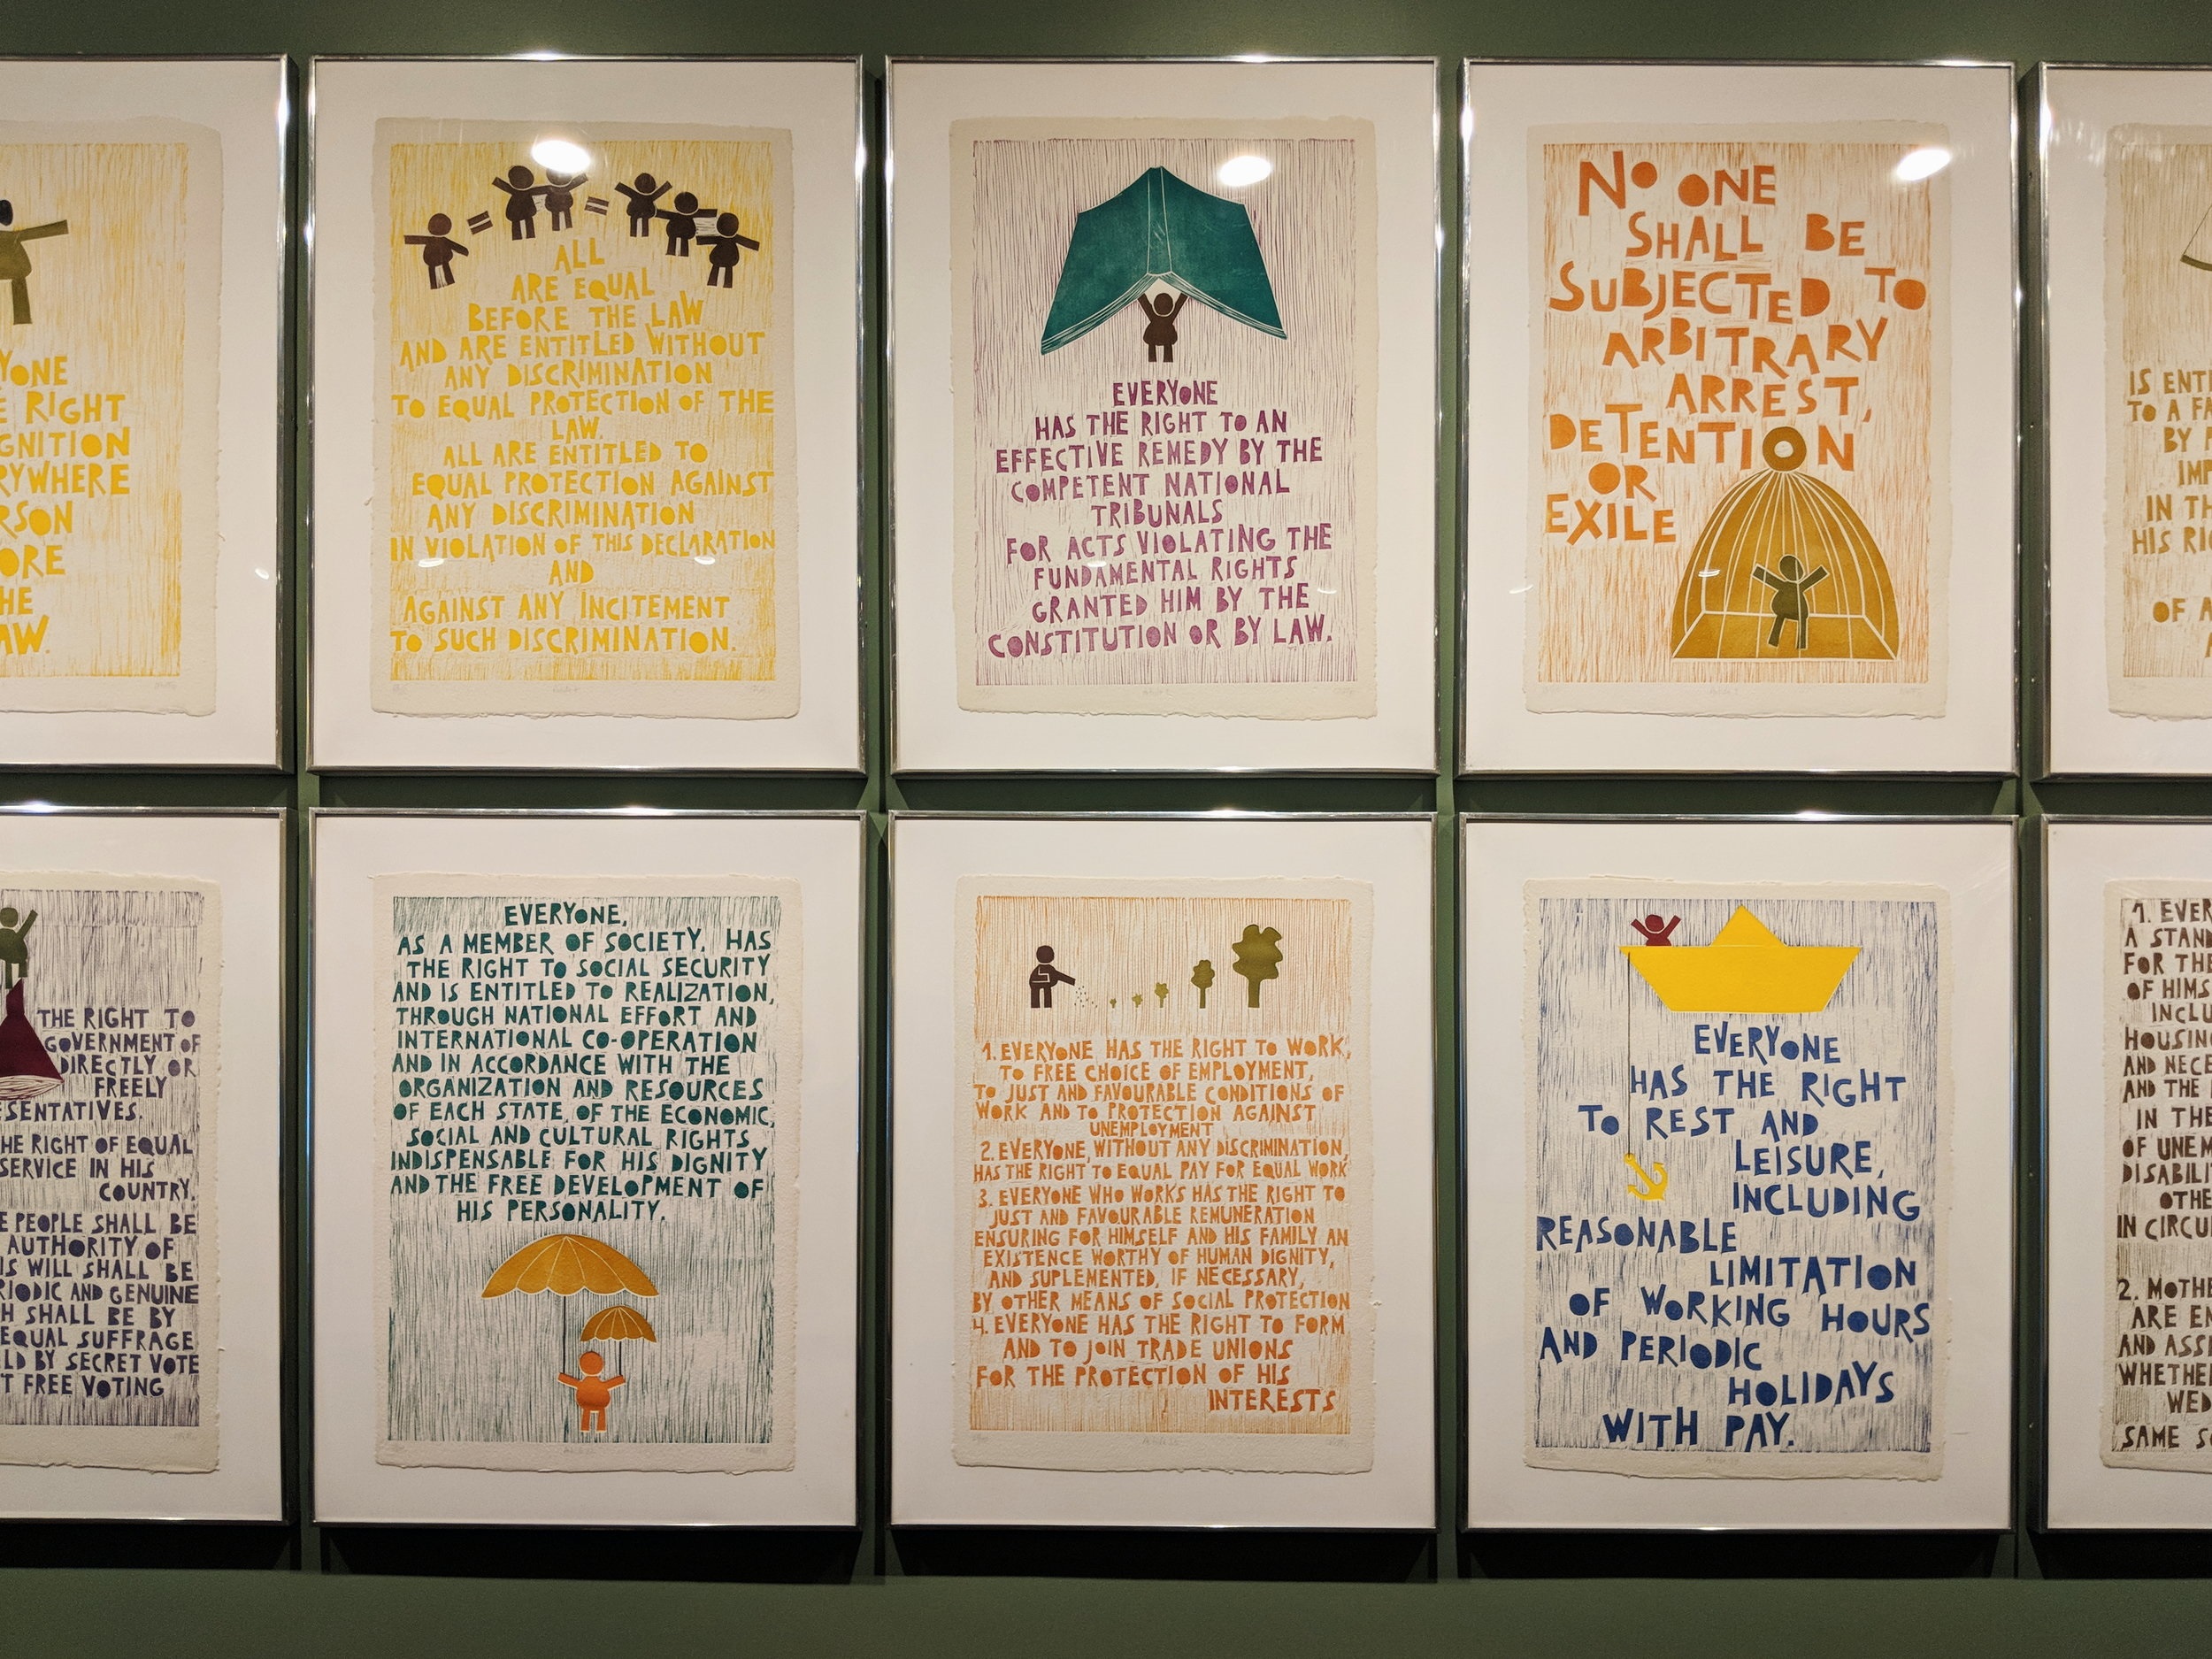 YONE
E RIGHT
GNITION
RYWHERE
RSON
ORE
HE
AW.
ALL
ARE EQUAL
BEFORE THE LAW
AND ARE ENTITLED WITHOUT
ANY DISCRIMINATION
TO EQUAL PROTECTION OF THE
LAW.
ALL ARE ENTITLED TO
EQUAL PROTECTION AGAINST
ANY DISCRIMINATION
IN VIOLATION OF THIS DECLARATION
AND
AGAINST ANY INCITEMENT
TO SUCH DISCRIMINATION.
EVERYONE
HAS THE RIGHT TO AN
EFFECTIVE REMEDY BY THE
COMPETENT NATIONAL
TRIBUNALS
FOR ACTS VIOLATING THE
FUNDAMENTAL RIGHTS
GRANTED HIM BY THE
CONSTITUTION OR BY LAW.
NO ONE
SHALL BE
SUBJECTED TO
ARBITRARY
ARREST,
DETENTION
OR
EXILE
IS ENTI
TO A FA
BY
IMP
IN TH
HIS RI
OF A
THE RIGHT TO
GOVERNMENT OF
DIRECTLY OR
FREELY
SENTATIVES.
HE RIGHT OF EQUAL
SERVICE IN HIS
COUNTRY.
E PEOPLE SHALL BE
AUTHORITY OF
IS WILL SHALL BE
RIODIC AND GENUINE
H SHALL BE BY
EQUAL SUFFRAGE
LD BY SECRET VOTE
T FREE VOTING
EVERYONE,
AS A MEMBER OF SOCIETY, HAS
THE RIGHT TO SOCIAL SECURITY
AND IS ENTITLED TO REALIZATION,
THROUGH NATIONAL EFFORT AND
INTERNATIONAL CO-OPERATION
AND IN ACCORDANCE WITH THE
ORGANIZATION AND RESOURCES
OF EACH STATE, OF THE ECONOMIC,
SOCIAL AND CULTURAL RIGHTS
INDISPENSABLE FOR HIS DIGNITY
AND THE FREE DEVELOPMENT OF
HIS PERSONALITY.
1. EVERYONE HAS THE RIGHT TO WORK,
TO FREE CHOICE OF EMPLOYMENT,
TO JUST AND FAVOURABLE CONDITIONS OF
WORK AND TO PROTECTION AGAINST
UNEMPLOYMENT
2. EVERYONE, WITHOUT ANY DISCRIMINATION,
HAS THE RIGHT TO EQUAL PAY FOR EQUAL WORK
3. EVERYONE WHO WORKS HAS THE RIGHT TO
JUST AND FAVOURABLE REMUNERATION
ENSURING FOR HIMSELF AND HIS FAMILY AN
EXISTENCE WORTHY OF HUMAN DIGNITY,
AND SUPLEMENTED, IF NECESSARY,
BY OTHER MEANS OF SOCIAL PROTECTION
4. EVERYONE HAS THE RIGHT TO FORM
AND TO JOIN TRADE UNIONS
FOR THE PROTECTION OF HIS
INTERESTS
EVERYONE
HAS THE RIGHT
TO REST AND
LEISURE,
INCLUDING
REASONABLE
LIMITATION
OF WORKING HOURS
AND PERIODIC
HOLIDAYS
WITH PAY.
1. EVER
A STAND
FOR THE
OF HIMS
INCLU
HOUSING
AND NECE
AND THE
IN THE
OF UNEM
DISABILI
OTHE
IN CIRCU
2. MOTHE
ARE EN
AND ASSI
WHETHER
WED
SAME S